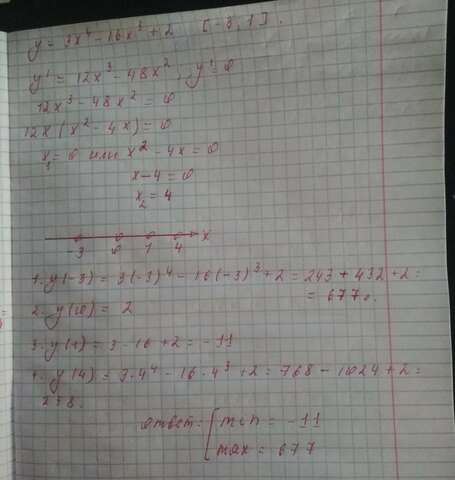 y = 3x⁴ - 16x³ + 2 [-3, 1].
y' = 12x³ - 48x², y' = 0
12x³ - 48x² = 0
12x (x² - 4x) = 0
x₁ = 0 или x² - 4x = 0
x - 4 = 0
x₂ = 4
-3 0 1 4 x
1. y(-3) = 3(-3)⁴ - 16(-3)³ + 2 = 243 + 432 + 2 =
= 677.
2. y(0) = 2
3. y(1) = 3 - 16 + 2 = -11
4. y(4) = 3·4⁴ - 16·4³ + 2 = 768 - 1024 + 2 =
ответ: [ min = -11
max = 677